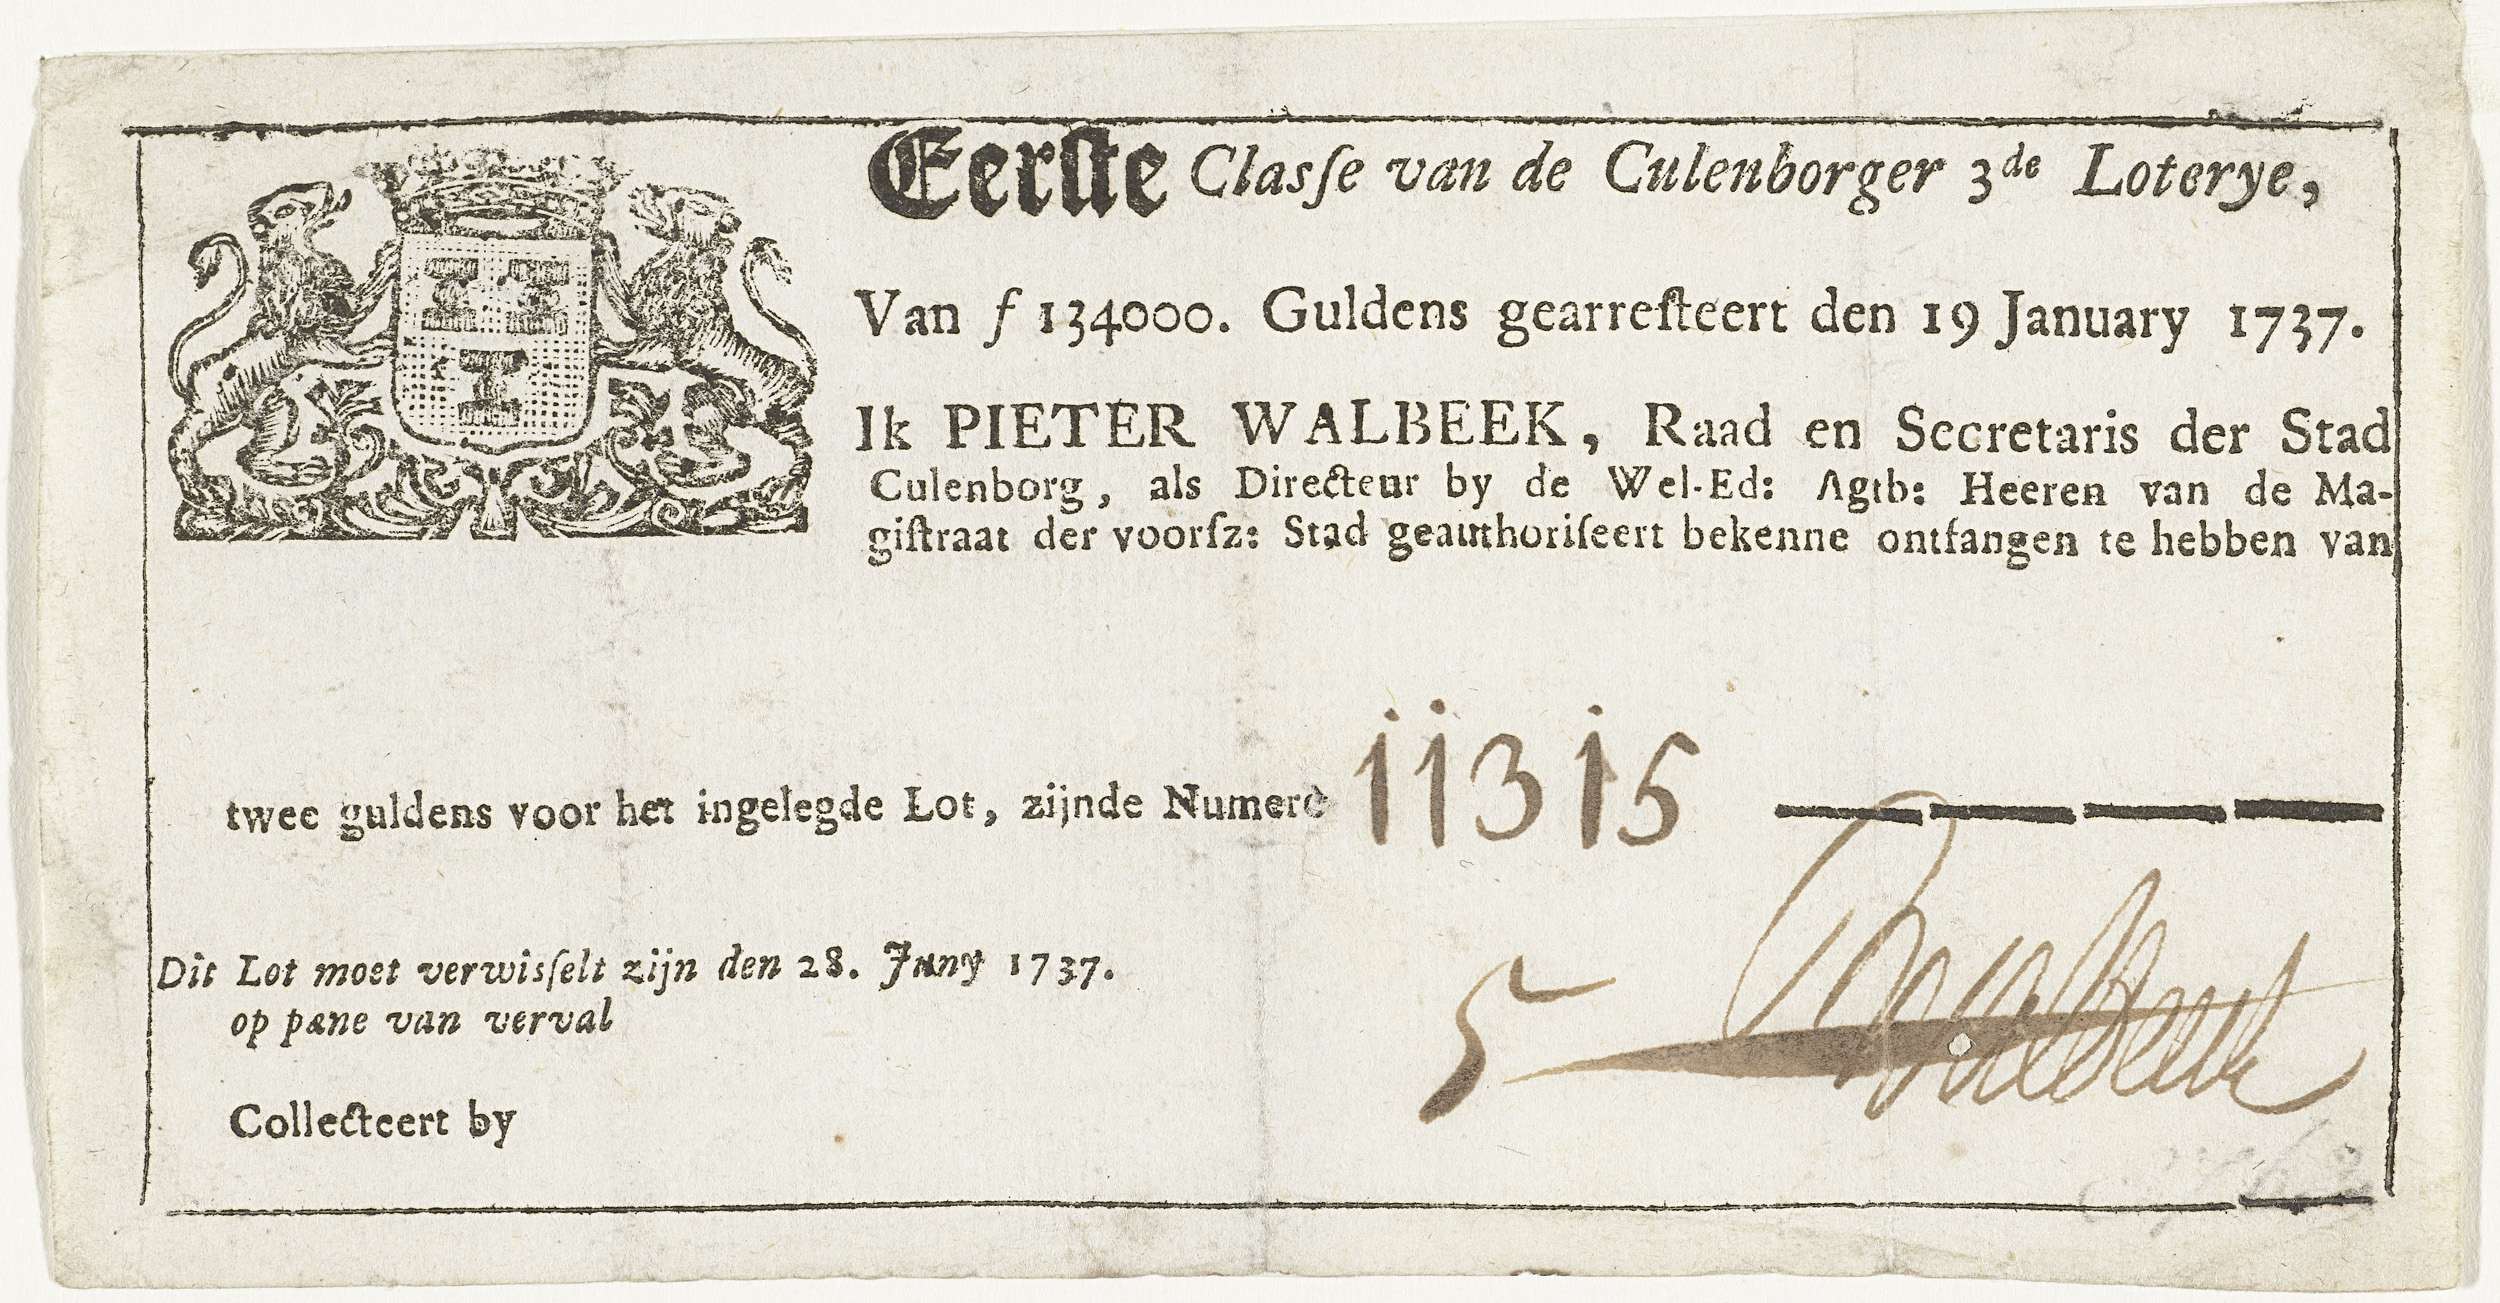 Eerſte Clasſe van de Culenborger 3de Loterye,
Van f 134000. Guldens gearreſteert den 19 January 1737.
Ik PIETER WALBEEK, Raad en Secretaris der Stad
Culenborg, als Directeur by de Wel-Ed: Agtb: Heeren van de Ma-
giſtraat der voorſz: Stad geauthoriſeert bekenne ontfangen te hebben van
twee guldens voor het ingelegde Lot, zijnde Numero 11315
Dit Lot moet verwisſelt zijn den 28. Juny 1737.
op pæne van verval
5
Collecteert by